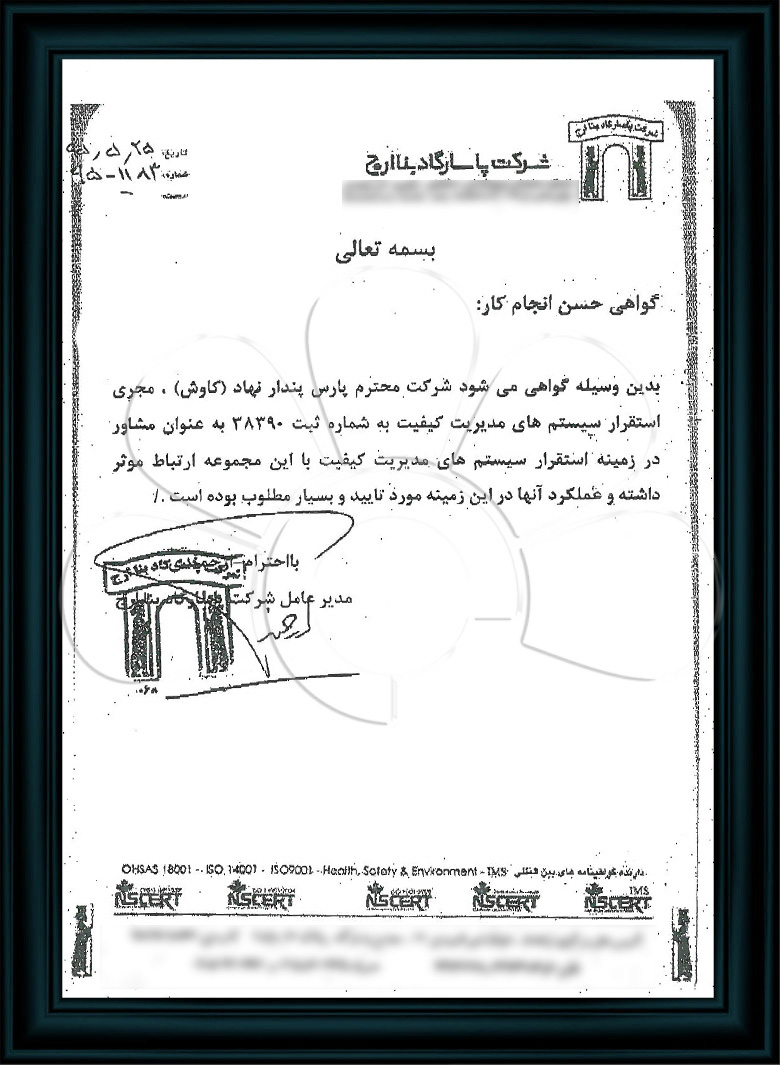 شرکت پاسارگاد بنا ارج
شرکت پاسارگاد بنا ارج
تاریخ: ۹۵٫۵٫۲۵
شماره: ۹۵-۱۱۸۳
پیوست: -
بسمه تعالی
گواهی حسن انجام کار:
بدین وسیله گواهی می شود شرکت محترم پارس پندار نهاد (کاوش) ، مجری
استقرار سیستم های مدیریت کیفیت به شماره ثبت ۳۸۳۹۰ به عنوان مشاور
در زمینه استقرار سیستم های مدیریت کیفیت با این مجموعه ارتباط موثر
داشته و عملکرد آنها در این زمینه مورد تایید و بسیار مطلوب بوده است ./
بااحترام
مدیر عامل شرکت پاسارگاد بنا ارج
دارنده گواهینامه های بین المللی OHSAS 18001 - ISO 14001 - ISO9001 - Health, Safety & Environment - TMS
TMS
NSCERT NSCERT NSCERT NSCERT NSCERT